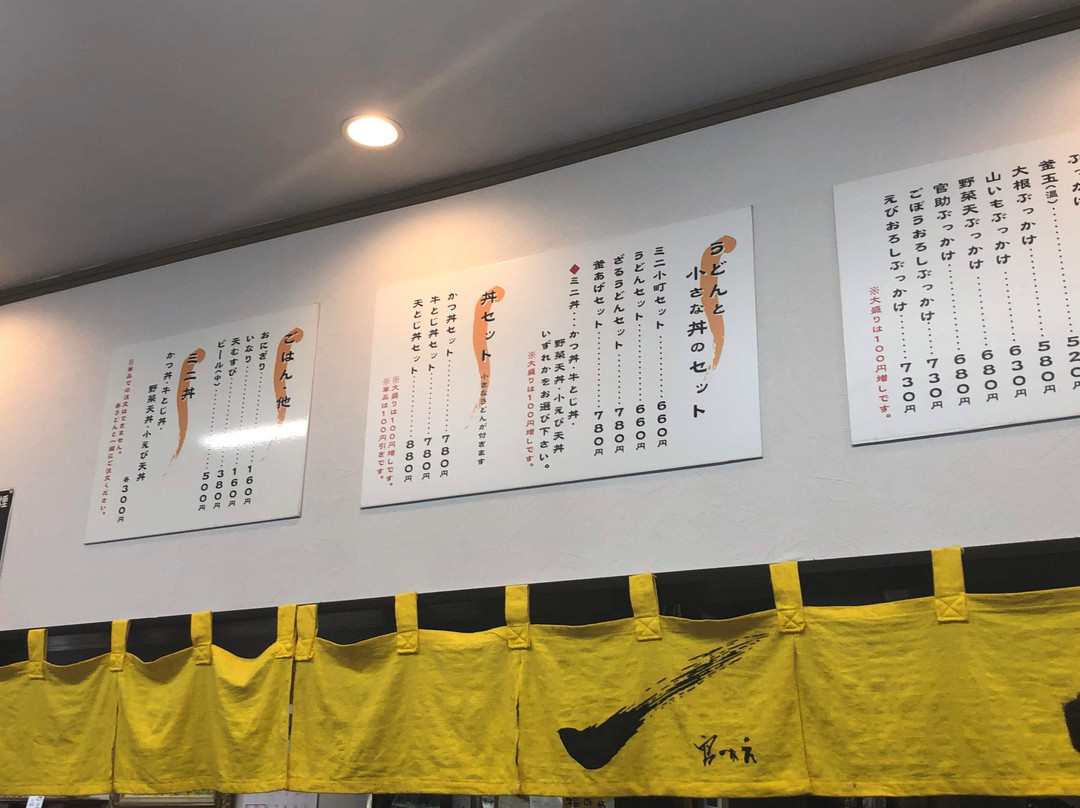 釜玉(温)・・・・・・580円
大根ぶっかけ・・・・・・630円
山いもぶっかけ・・・・・・680円
野菜天ぶっかけ・・・・・・680円
官助ぶっかけ・・・・・・680円
ごぼうおろしぶっかけ・・・・730円
えびおろしぶっかけ・・・・730円
※大盛りは100円増しです。
うどんと
小さな丼のセット
ミニ小町セット・・・・・・660円
うどんセット・・・・・・660円
ざるうどんセット・・・・・・780円
釜あげセット・・・・・・780円
◆ミニ丼・・かつ丼・牛とじ丼・
野菜天丼・小えび天丼
いずれかをお選び下さい。
※大盛りは100円増しです。
丼セット 小さなうどんが付きます
かつ丼セット・・・・・・780円
牛とじ丼セット・・・・・・780円
天とじ丼セット・・・・・・880円
※大盛りは100円増しです。
※単品は100円引きです。
ごはん・他
おにぎり・・・・・・160円
いなり・・・・・・160円
天むすび・・・・・・380円
ビール(中)・・・・・・500円
ミニ丼
かつ丼・牛とじ丼・
野菜天丼・小えび天丼
各300円
※単品での注文はできません。
各うどんと一緒にご注文ください。